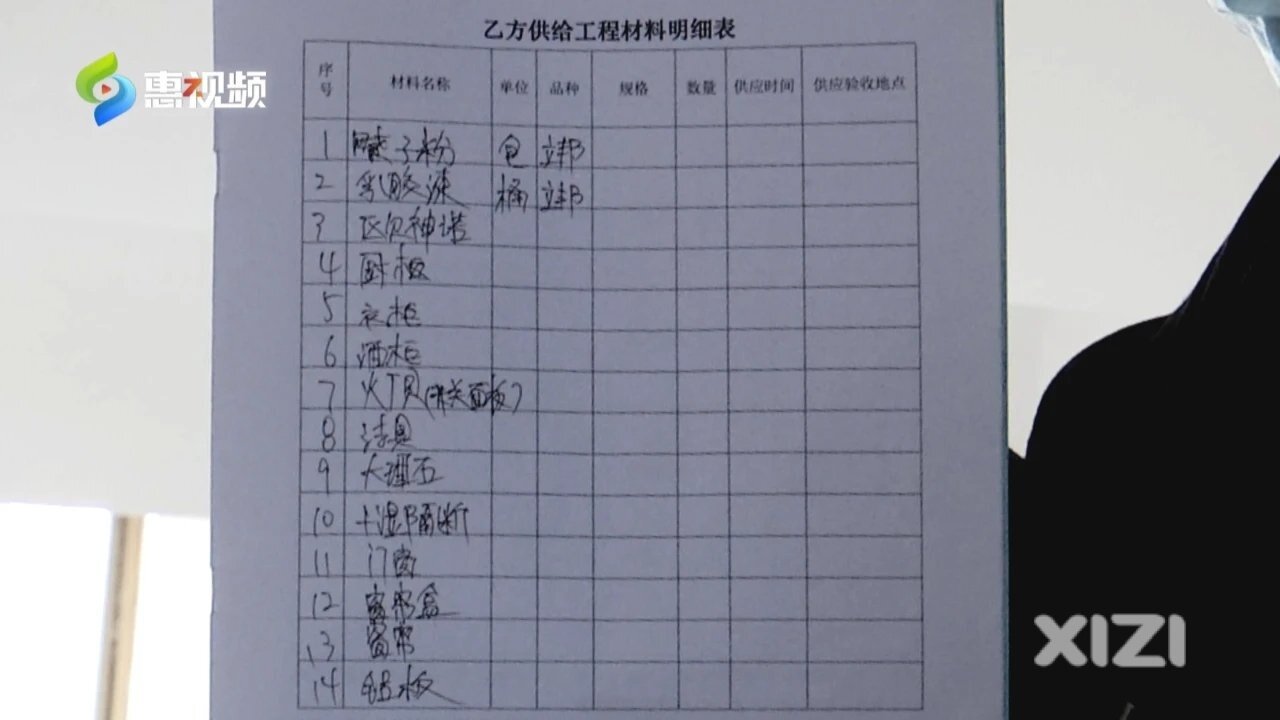 惠视频
乙方供给工程材料明细表
序号 材料名称 单位 品种 规格 数量 供应时间 供应验收地点
1 腻子粉 包 立邦
2 乳胶漆 桶 立邦
3
4 厨柜
5 衣柜
6 酒柜
7 灯具(开关面板)
8 洁具
9 大理石
10 干湿隔断
11 门窗
12 窗帘盒
13 窗帘
14 铝板
XIZI